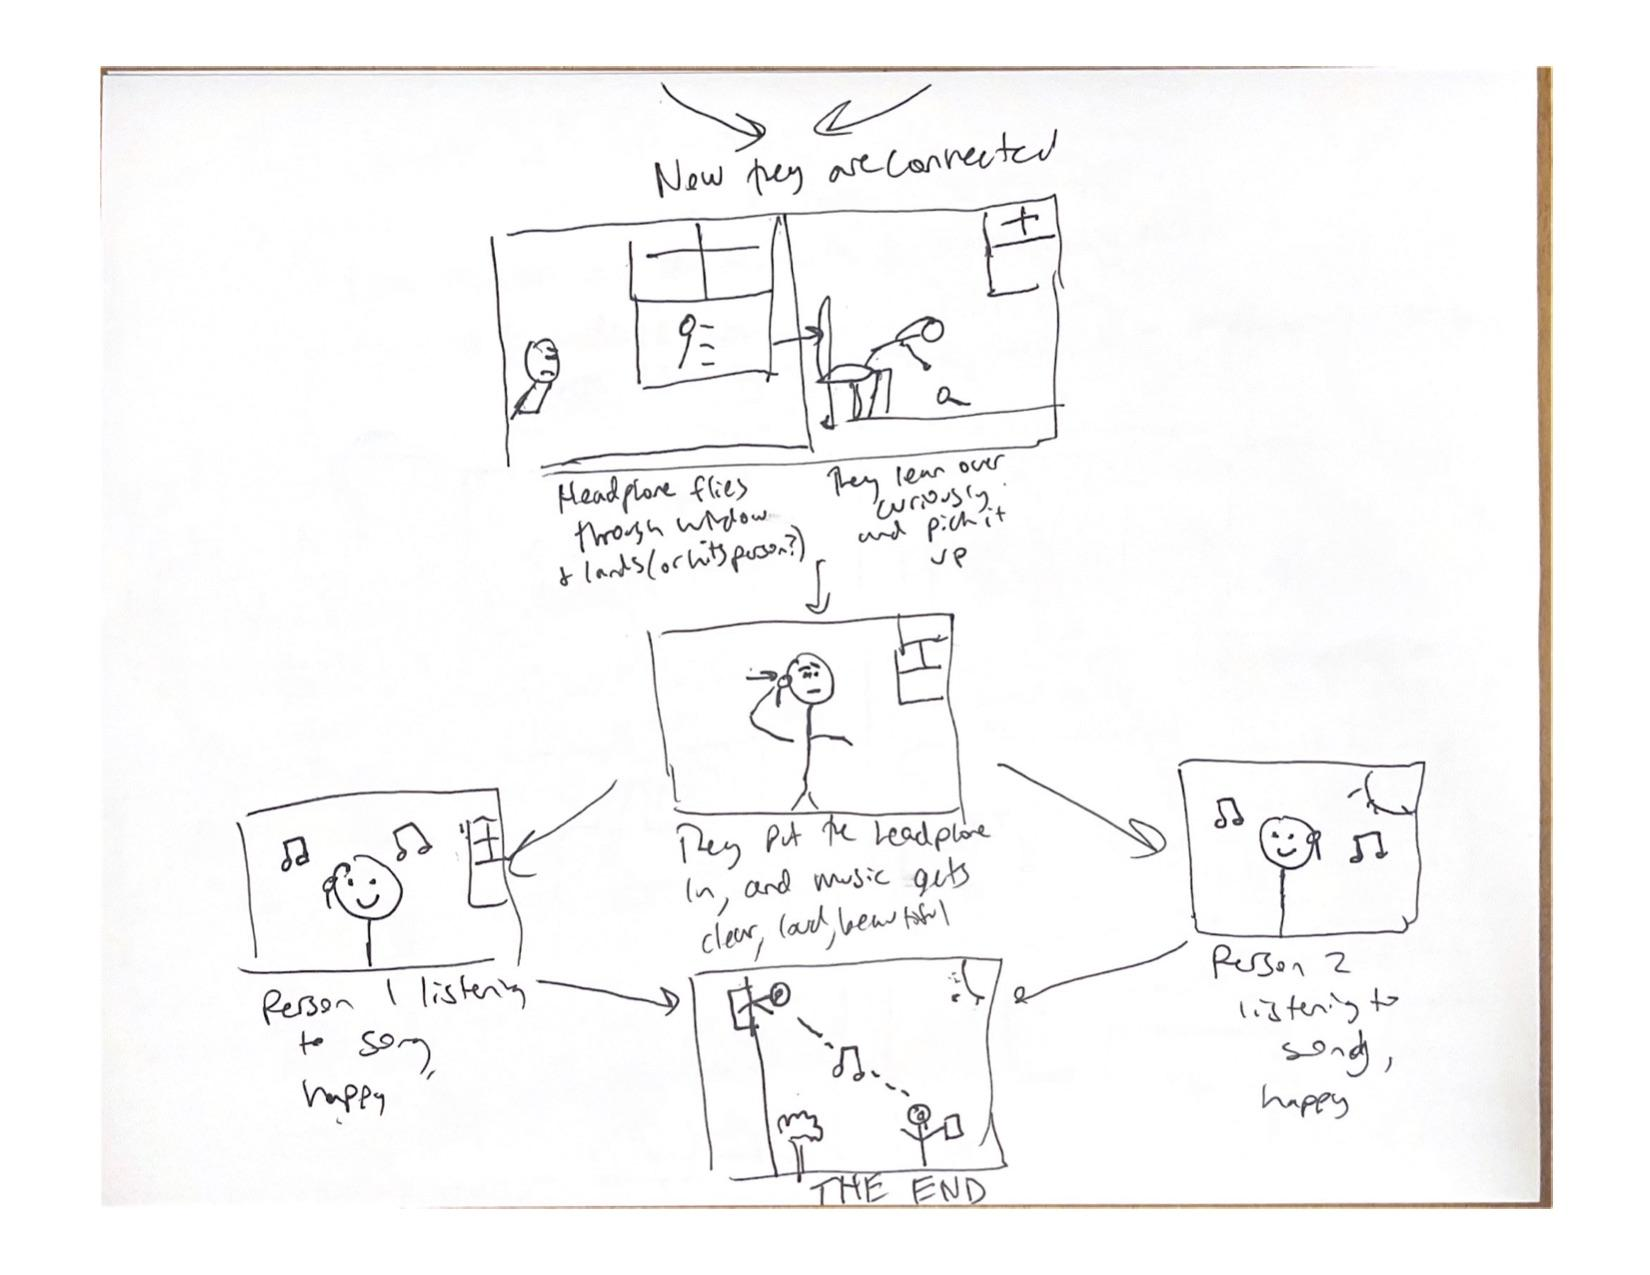 New they are connected
Headphone flies
through window
& lands (or hits person?)
They lean over
curiously
and pick it
up
They put the headphone
in, and music gets
clear, loud, beautiful
Person 1 listening
to song,
happy
Person 2
listening to
song,
happy
THE END